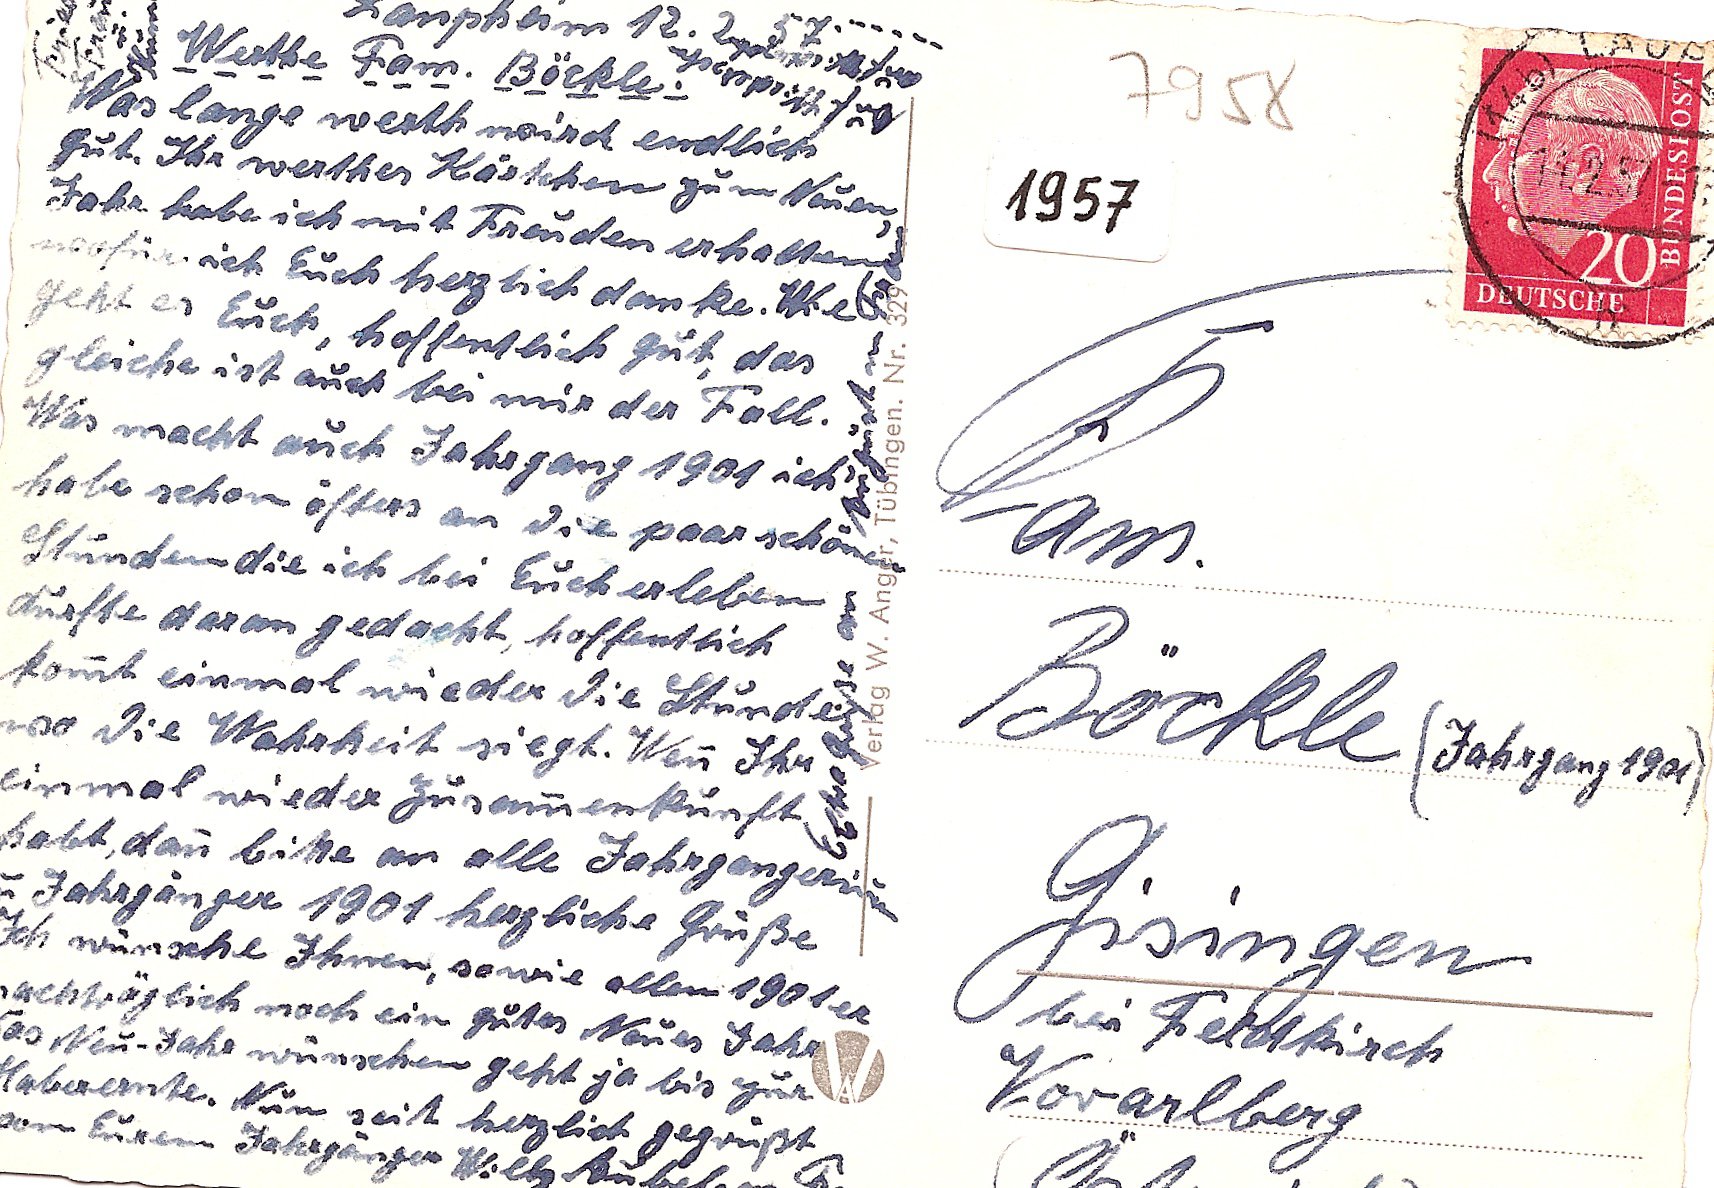 Laupheim 12. 2. 57.
Werthe Fam. Böckle.
Was lange werth wird endlich
gut. Ihr werthes Kärtchen zum Neuen
Jahr habe ich mit Freuden erhalten,
wofür ich Euch herzlich danke. Wie
geht es Euch, hoffentlich gut, das
gleiche ist auch bei mir der Fall.
Was macht auch Jahrgang 1901 ich
habe schon öfters an die paar schönen
Stunden die ich bei Euch erleben
durfte daran gedacht, hoffentlich
kom̄t einmal wieder die Stunde
wo die Wahrheit siegt. Wen̄ Ihr
einmal wieder Zusam̄enkunft
habt, dan̄ bitte an alle Jahrgangerin̄
u Jahrgänger 1901 herzliche Grüße
Ich wünsche Ihnen, sowie allen 1901er
nachträglich noch ein gutes Neues Jahr
Das Neu-Jahr wünschen geht ja bis zur
Haberernte. Nun seit herzlich gegrüßt
vom Eurem Jahrgänger Willy
Verlag W. Anger, Tübingen. Nr. 329
W A
7958
1957
LAUPH
14.2.57
20
DEUTSCHE
BUNDESPOST
Fam.
Böckle (Jahrgang 1901)
Gisingen
bei Feldkirch
Vorarlberg